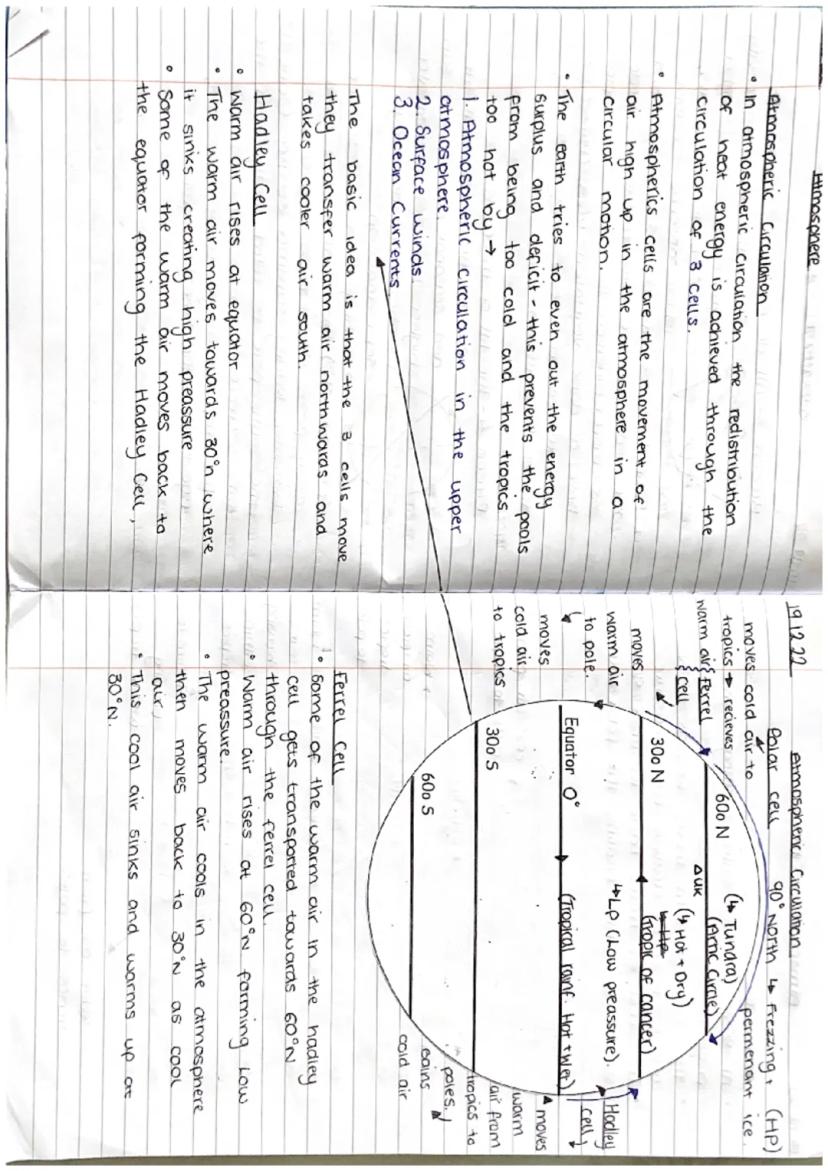 Atmosphere
Atmospheric Circulation
• In atmospheric circulation the redistribution
of heat energy is achieved through the
circulation of 3 cells.
• Atmospherics cells are the movement of
air high up in the atmosphere in a
circular motion.
• The earth tries to even out the energy
surplus and deficit - this prevents the pools
from being too cold and the tropics
too hot by →
1. Atmospheric circulation in the upper
atmosphere.
2. Surface winds.
3. Ocean Currents
The basic idea is that the 3 cells move
they transfer warm air northwards and
takes cooler air south.
Hadley Cell
• Warm air rises at equator
• The warm air moves towards 30°n where
it sinks creating high preassure
• Some of the warm air moves back to
the equator forming the Hadley Cell,
19.12.22
Atmospheric Circulation
Polar cell
90° North ↳ Frezzing, (HP)
permenant ice
moves cold air to
tropics → recieves
warm air
Ferrel
cell
moves
warm air
to pole.
moves
cold air
to tropics
60o N
(↳ Tundra)
(Artic Circle)
▵ UK
(↳ Hot + Dry)
↳ Hp
30o N
(Tropic of cancer)
↳ Lp (Low preassure).
Equator 0°
(Tropical rainf. Hot + Wet)
30o S
60o S
Hadley
cell
moves
warm
air from
tropics to
poles.
Gains
cold air
Ferrel Cell
• Some of the warm air in the hadley
cell gets transported towards 60°N
through the ferrel cell.
• Warm air rises at 60°N forming Low
preassure.
• The warm air cools in the atmosphere
then moves back to 30°N as cool
air.
• This cool air sinks and warms up at
30°N.